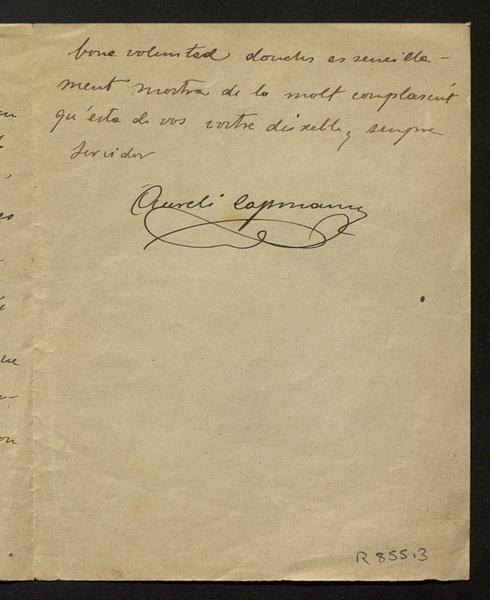 bona voluntad donchs es sencilla-
ment mostra de lo molt complascut
qu'esta de vos vostre deixeble y sempre
servidor
Aureli Capmany
R 855.3